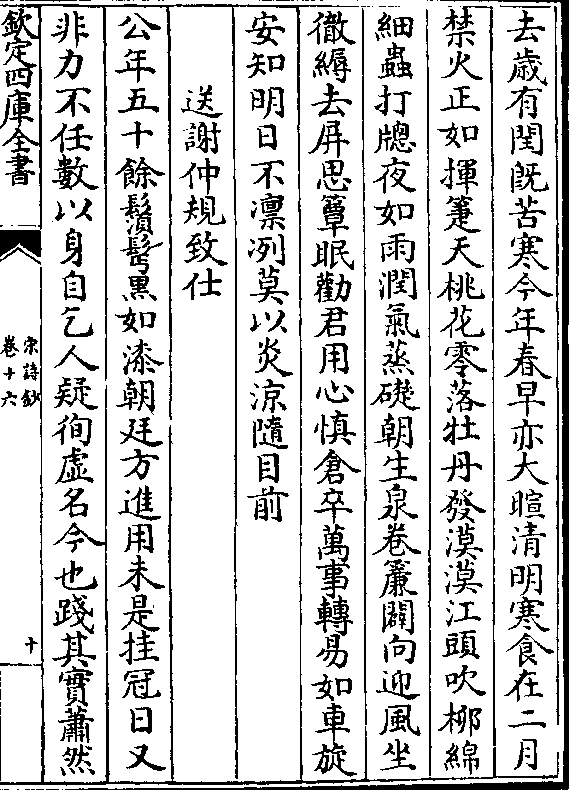 去歳有閏旣苦寒今年春早亦大暄清明寒食在二月
禁火正如揮箑天桃花零落牡丹發漠漠江頭吹栁綿
細蟲打牕夜如雨潤氣蒸礎朝生泉卷簾闢向迎風坐
徹縟去屏思簟眠勸君用心慎倉卒萬事轉易如車旋
安知明日不凛冽莫以炎凉隨目前
送謝仲規致仕
公年五十餘鬚髩黒如漆朝廷方進用未是挂冠日又
非力不任數以身自乞人疑徇虚名今也踐其實蕭然
欽定四庫全書
宋詩鈔
卷十六
十